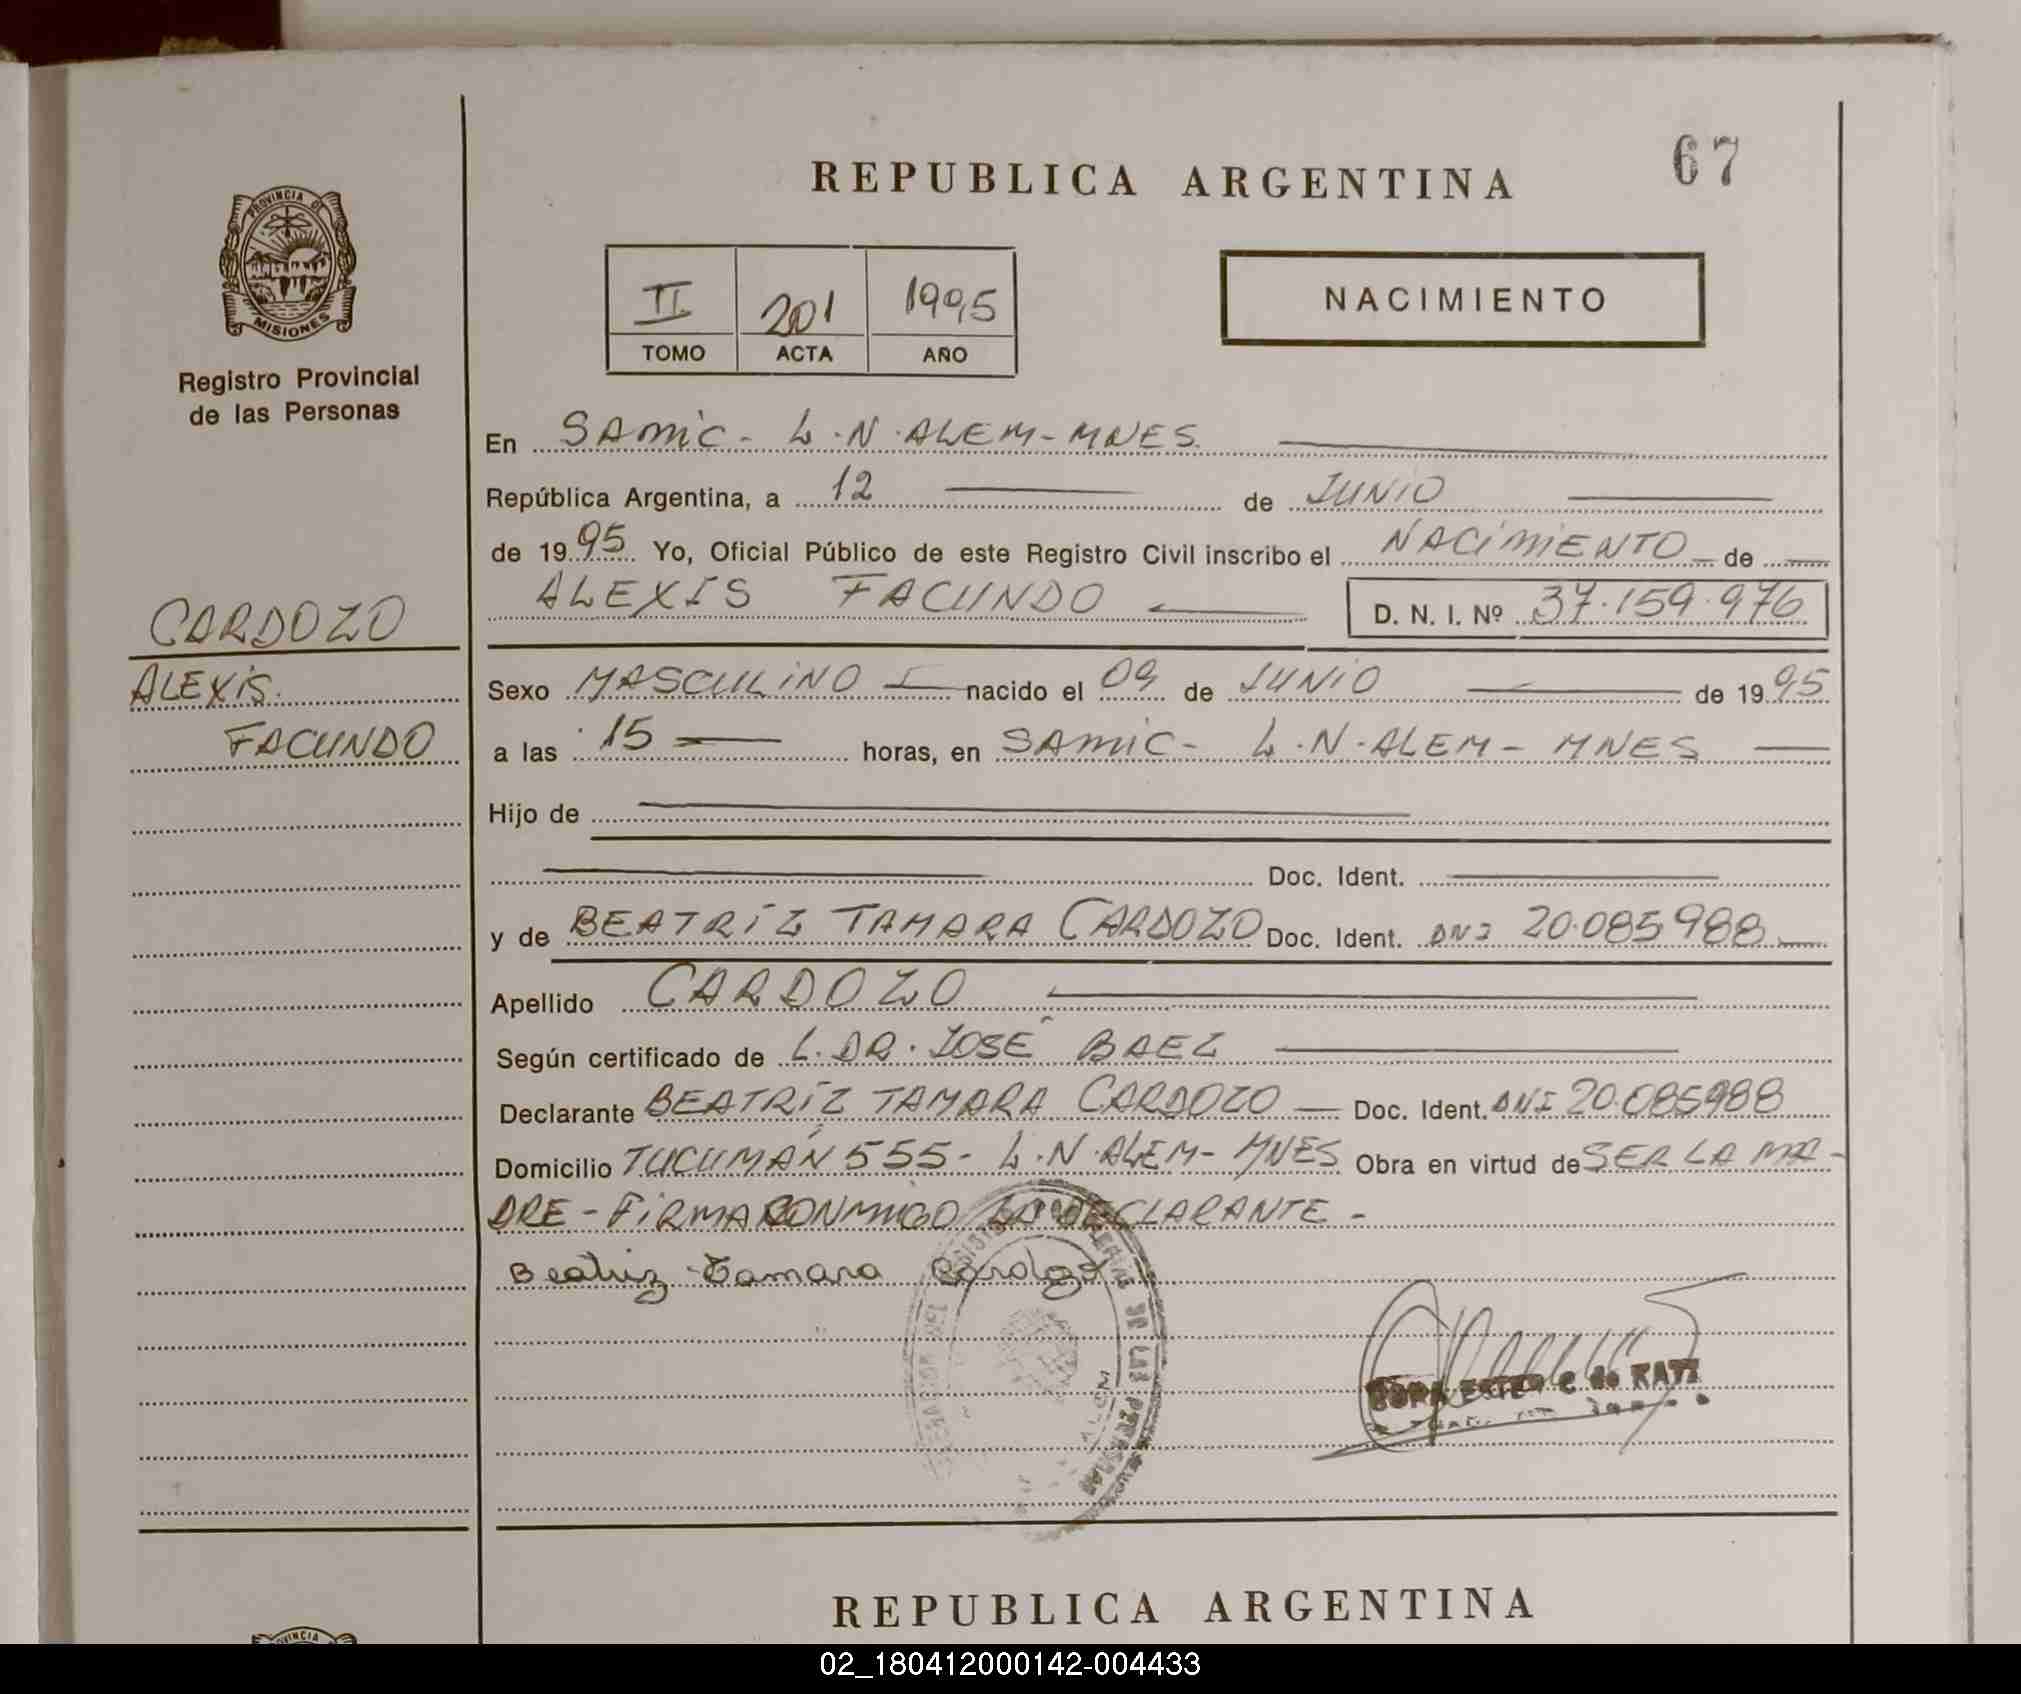 REPUBLICA ARGENTINA
67
PROVINCIA DE
MISIONES
Registro Provincial
de las Personas
II 201 1995
TOMO ACTA AÑO
NACIMIENTO
En SAMIC - L.N.ALEM-MNES.
República Argentina, a 12 de JUNIO
de 1995 Yo, Oficial Público de este Registro Civil inscribo el NACIMIENTO de
ALEXIS FACUNDO D. N. I. Nº 37.159.976
CARDOZO
ALEXIS
FACUNDO
Sexo MASCULINO nacido el 09 de JUNIO de 1995
a las 15 horas, en SAMIC - L.N.ALEM - MNES
Hijo de
Doc. Ident.
y de BEATRIZ TAMARA CARDOZO Doc. Ident. DNI 20.085988
Apellido CARDOZO
Según certificado de L. DR. JOSÉ BAEZ
Declarante BEATRÍZ TAMARA CARDOZO Doc. Ident. DNI 20.085988
Domicilio TUCUMÁN 555 - L.N.ALEM - MNES Obra en virtud de SER LA MA-
DRE - FIRMA CONMIGO LA DECLARANTE -
Beatriz Tamara Cardozo
DE LAS PERSONAS
ALEM
REPUBLICA ARGENTINA
02_180412000142-004433